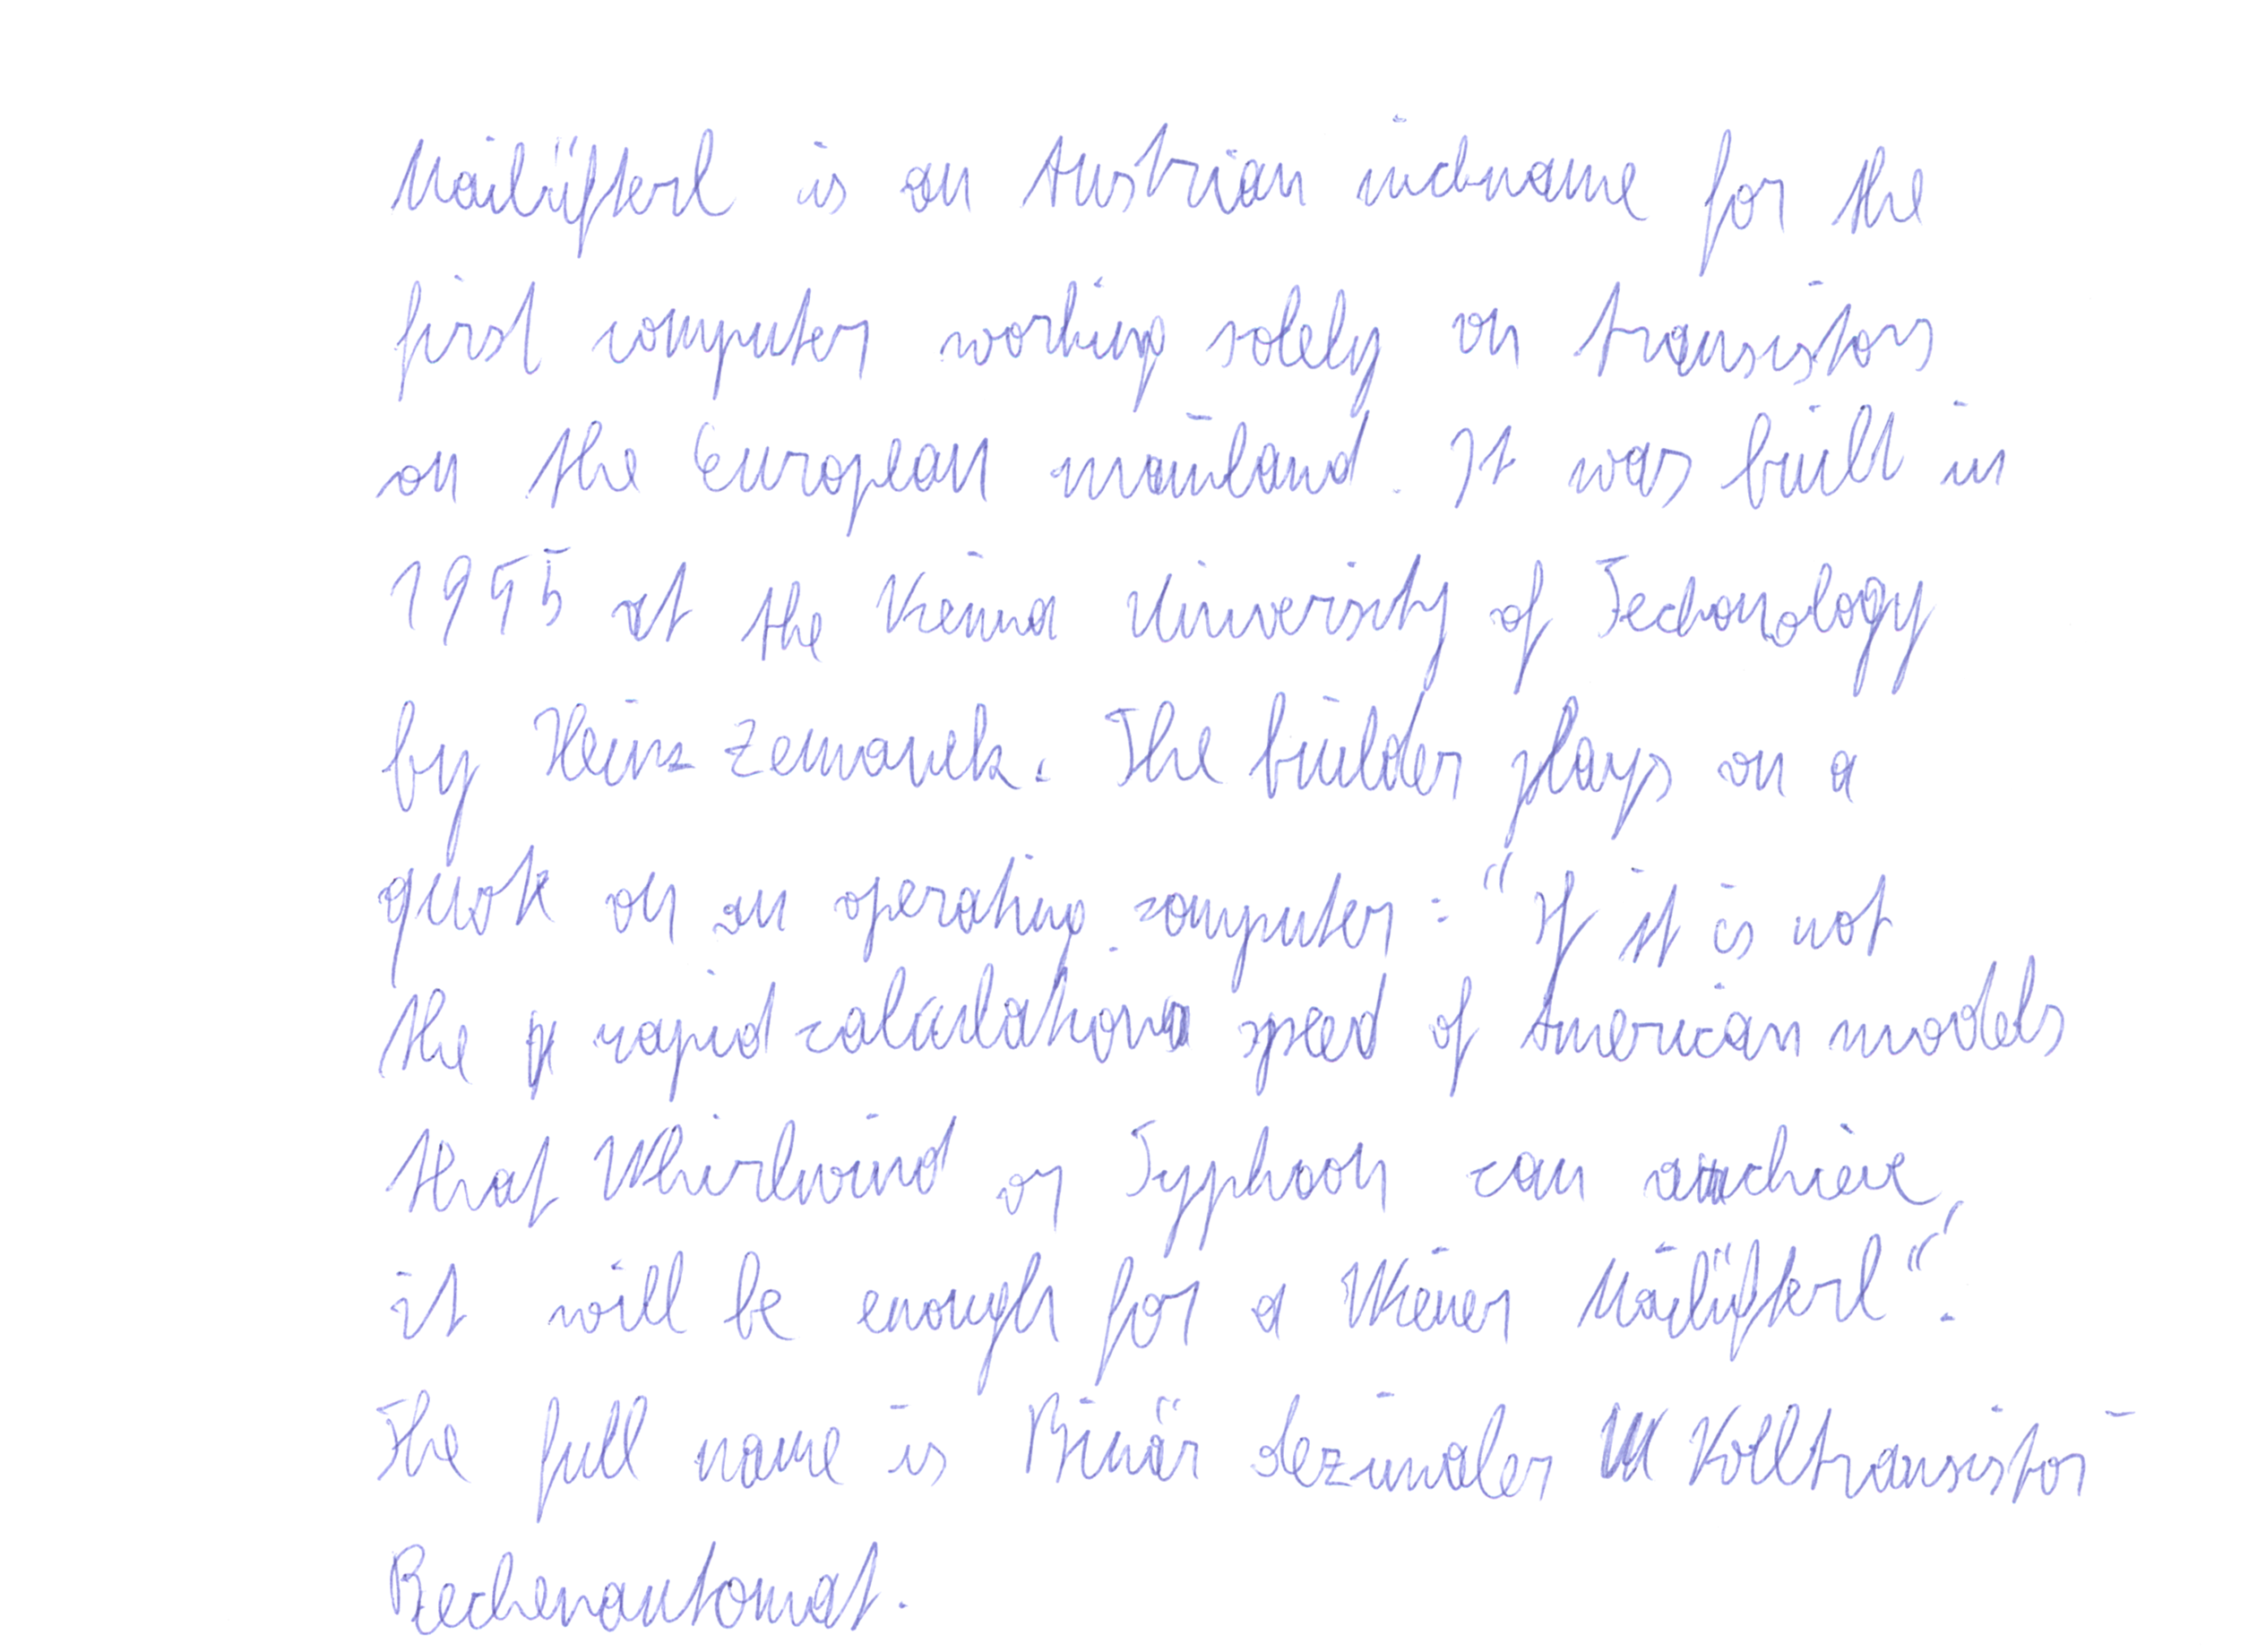 Mailüfterl is an Austrian nickname for the
first computer working solely on transistors
on the European mainland. It was built in
1955 at the Vienna University of Technology
by Heinz Zemanek. The builder plays on a
quote on an operating computer: "If it is not
the rapid calculation speed of American models
that Whirlwind or Typhoon can achieve,
it will be enough for a Wiener Mailüfterl".
The full name is Binär dezimaler Volltransistor-
Rechenautomat.